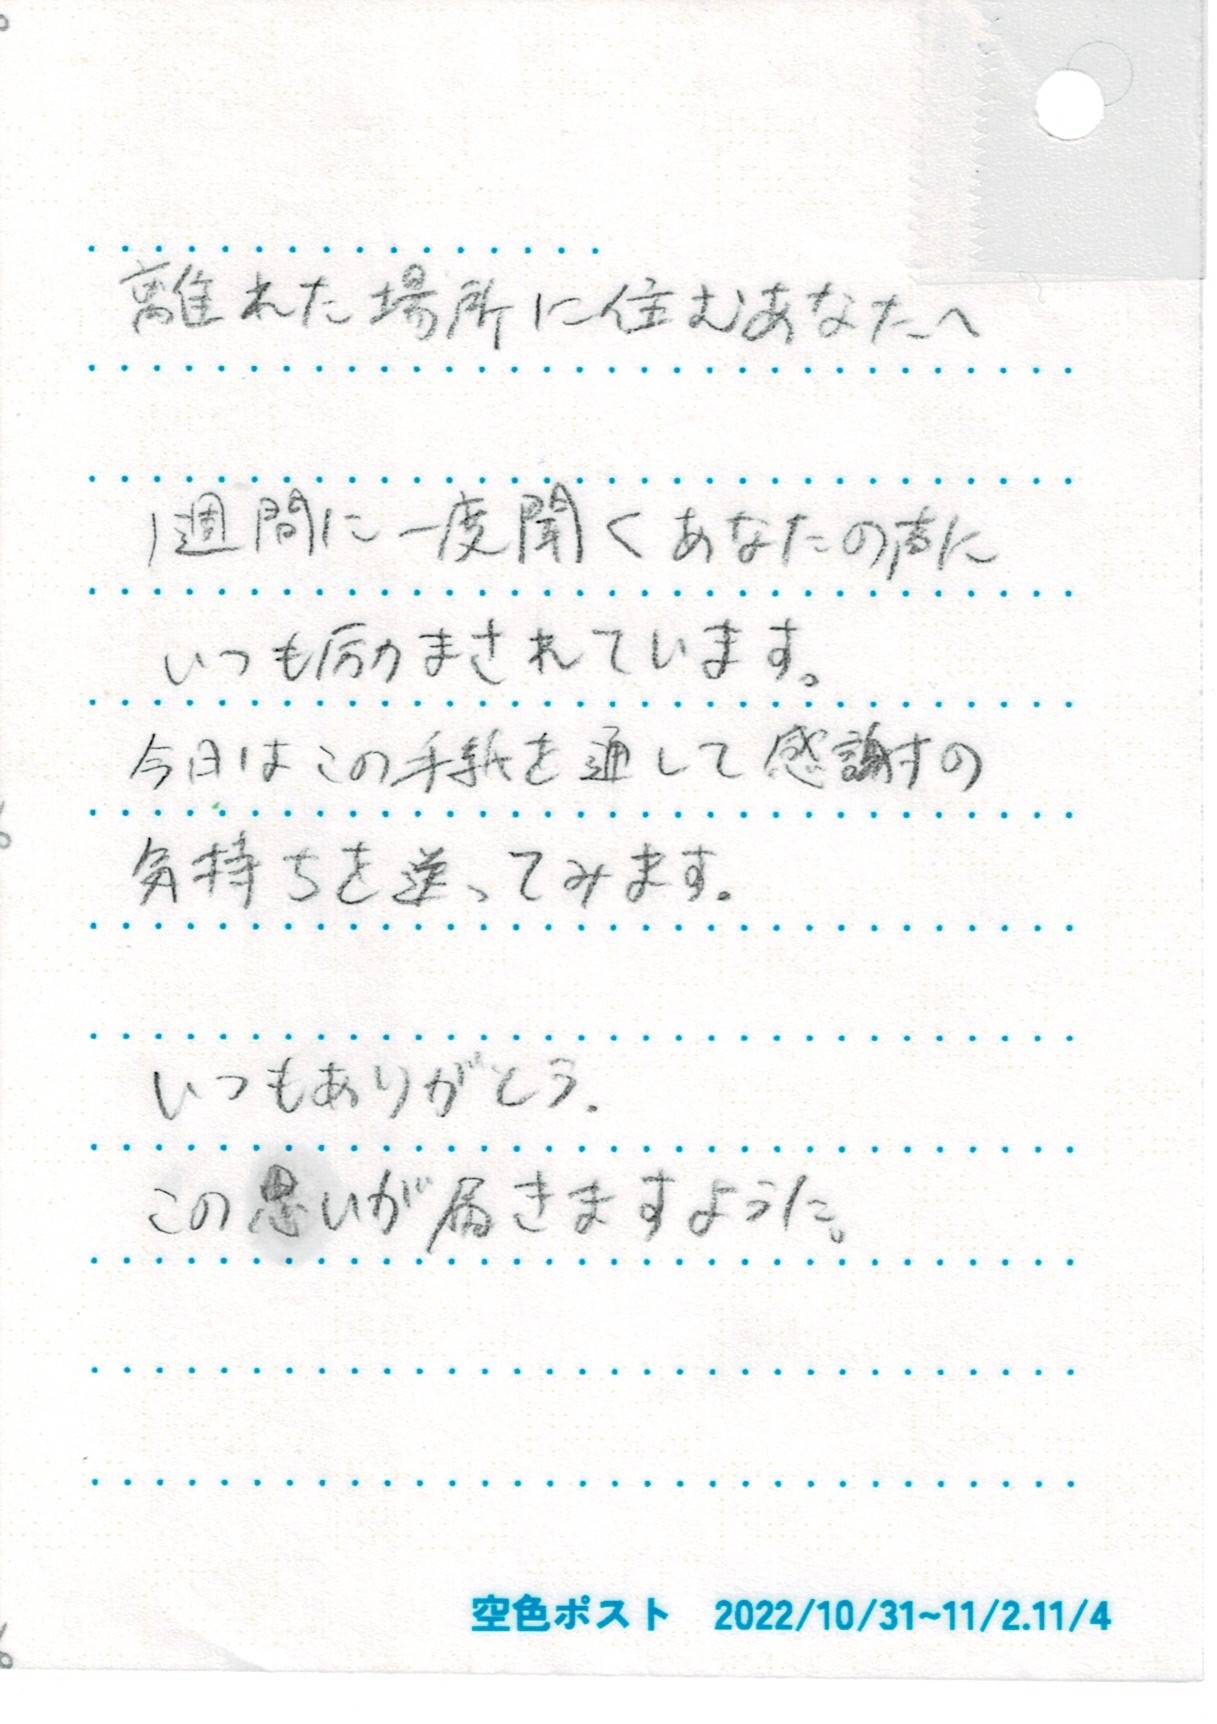 離れた場所に住むあなたへ
1週間に一度聞くあなたの声に
いつも励まされています。
今日はこの手紙を通して感謝の
気持ちを送ってみます。
いつもありがとう.
この思いが届きますように。
空色ポスト 2022/10/31~11/2.11/4